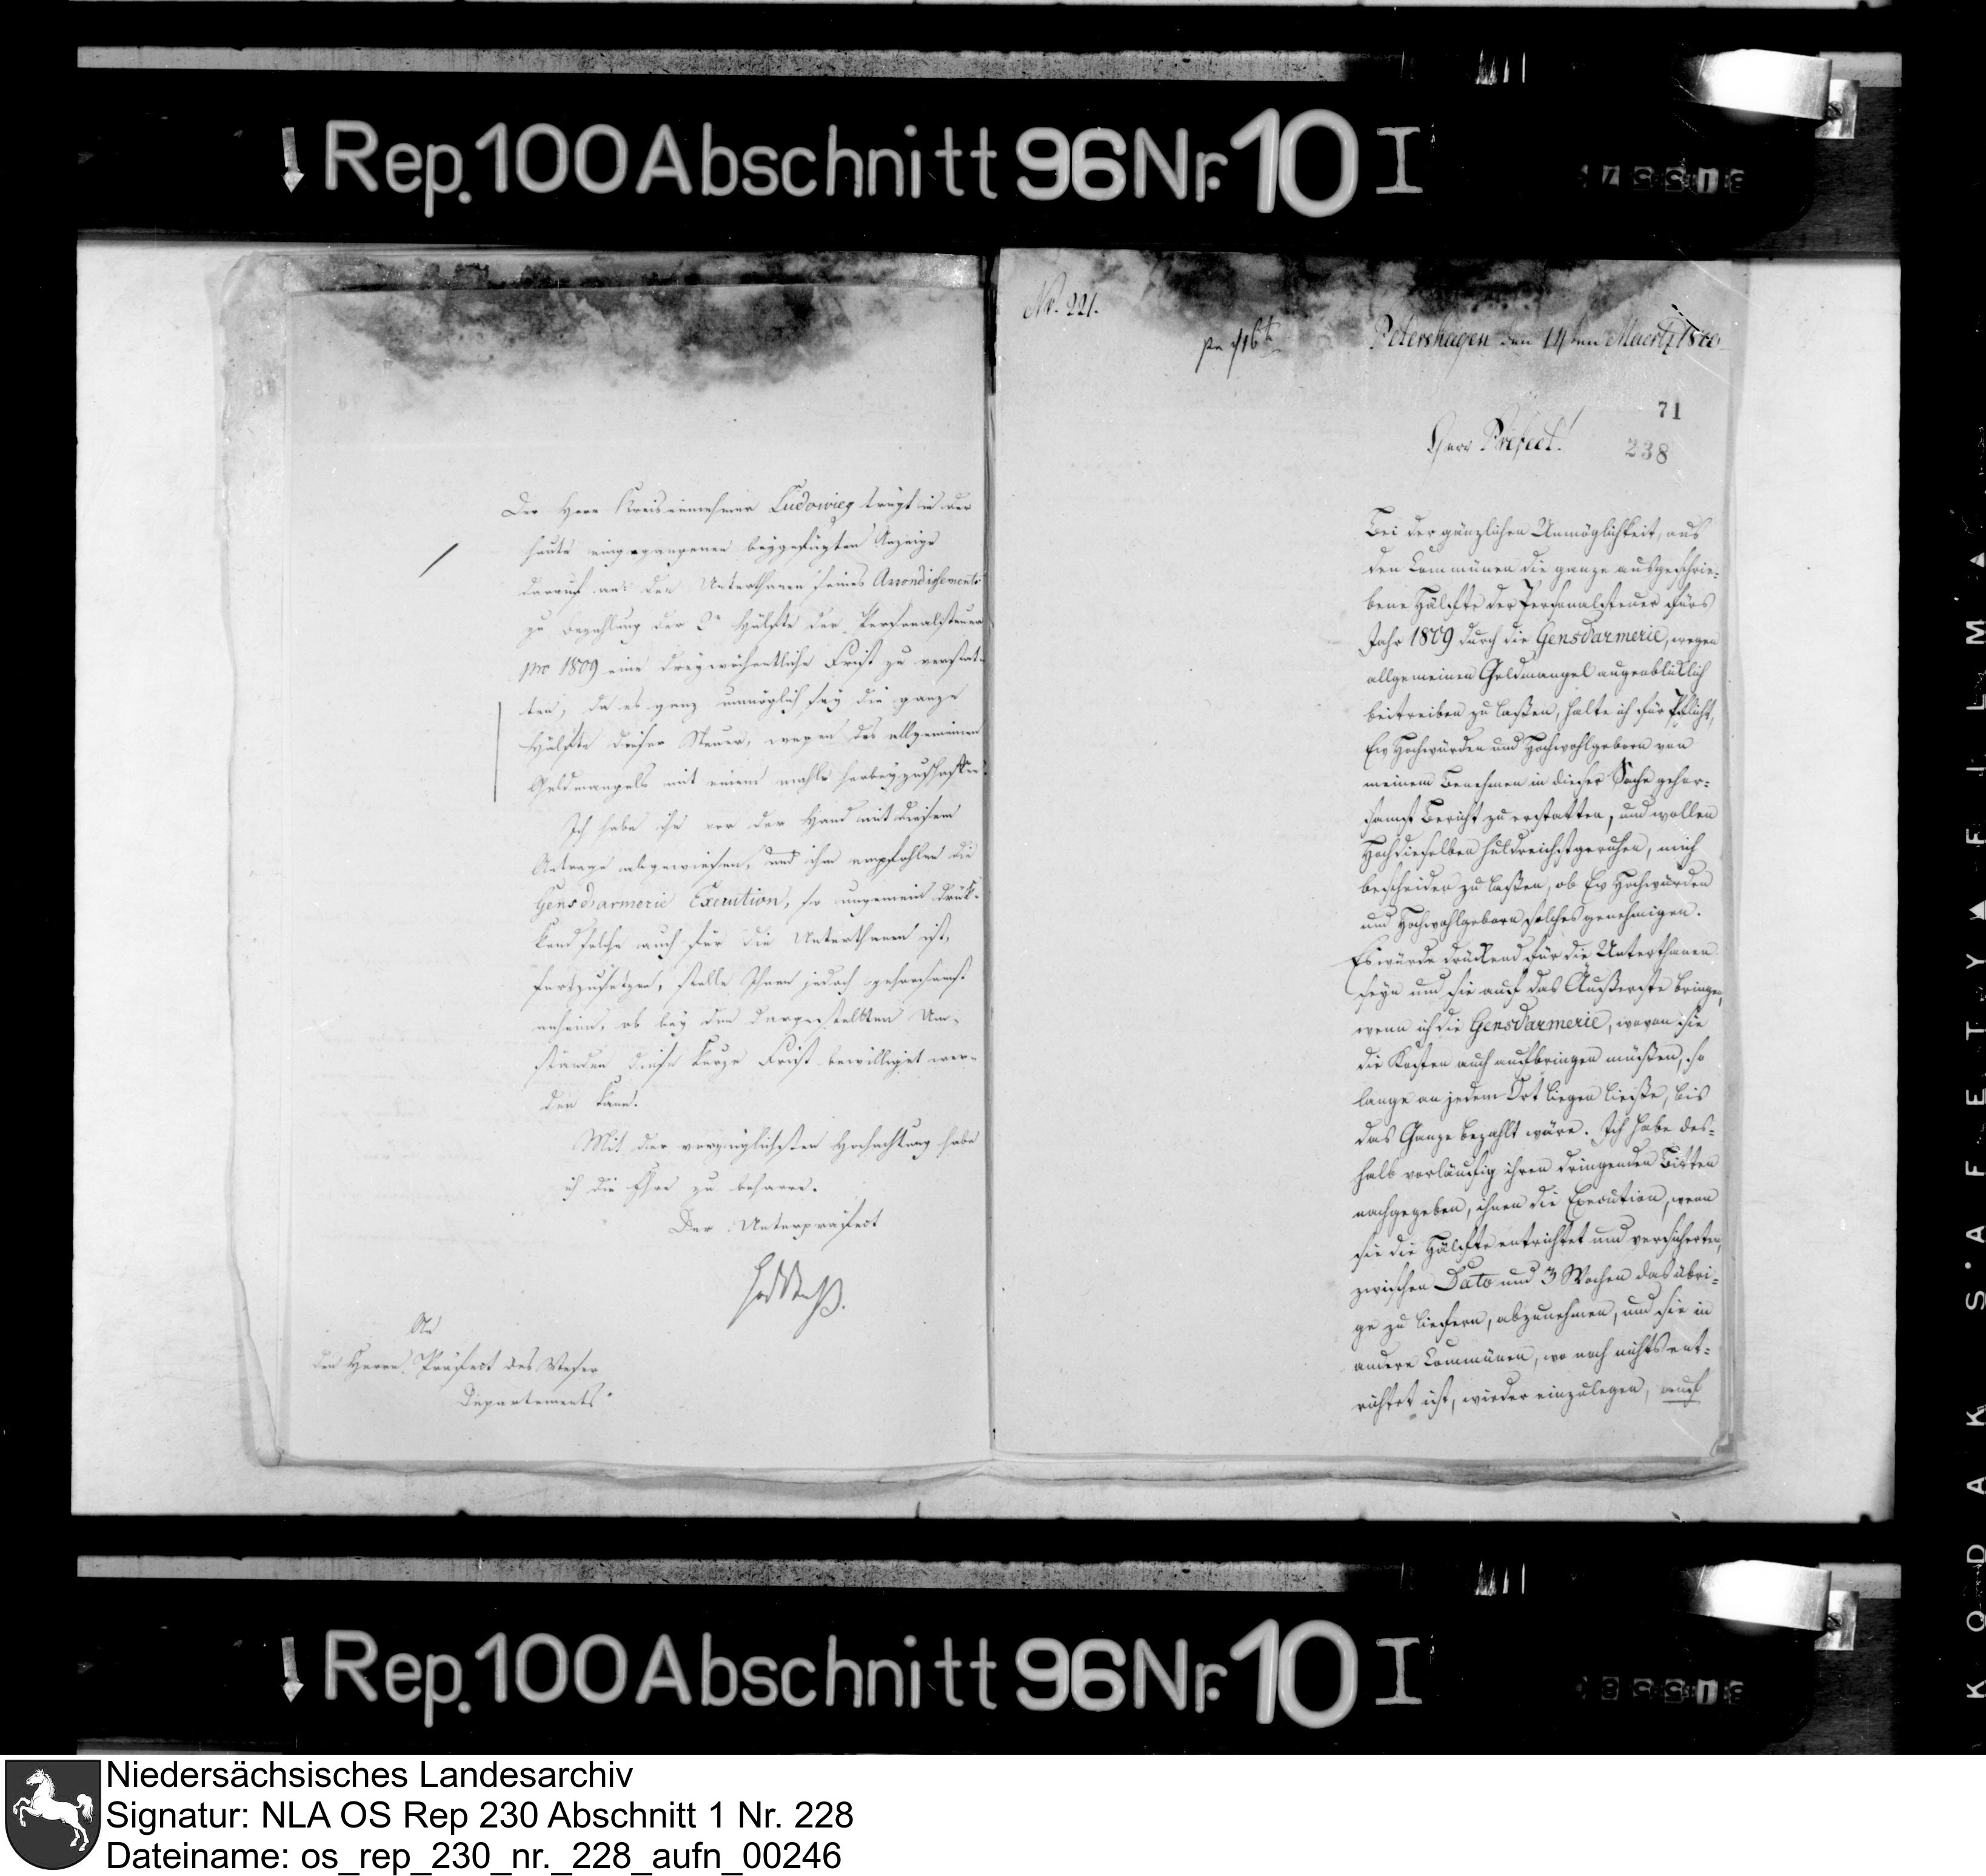 Rep. 100 Abschnitt 96 Nr. 10 I
Der Herr Kreiseinnehmer Ludowieg trägt in der
heute eingegangenen beygefügten Anzeige
darauf an: den Unterthanen seines Arrondissements
zu Bezahlung der 2n Hälfte der Personalsteuer
pro 1809 eine dreywöchentliche Frist zu verstat-
ten, da es ganz unmöglich sey die ganze
Hälfte dieser Steuer, wegen des allgemeinen
Geldmangels mit einem mahle herbeyzuschaffen.
Ich habe ihn vor der Hand mit diesem
Antrage abgewiesen, und ihm empfohlen die
Gensdarmerie Execution, so ungemein drük-
kend solche auch für die Unterthanen ist,
fortzusetzen, stelle Ihnen jedoch gehorsamst
anheim, ob bey den dargestellten Um-
ständen diese kurze Frist bewilliget wer-
den kann.
Mit der vorzüglichsten Hochachtung habe
ich die Ehre zu beharre.
Der Unterpräfect
An
den Herrn Präfect des Weser
Departements
Nr. 221.
Petershagen den 14ten Maertz 1810
71
Herr Prefect!
238
Bei der gänzlichen Unmöglichkeit, aus
den Communen die ganze ausgeschrie-
bene Hälfte der Personalsteuer fürs
Jahr 1809 durch die Gensdarmerie, wegen
allgemeinen Geldmangel augenbliklich
beitreiben zu laßen, halte ich für Pflicht,
Ew Hochwürden und Hochwohlgeborn von
meinem Benehmen in dieser Sache gehor-
samst Bericht zu erstatten, und wollen
Hochdieselben huldreichst geruhen, mich
bescheiden zu laßen, ob Ew Hochwürden
und Hochwohlgeborn solches genehmigen.
Es würde drükend für die Unterthanen
seyn und sie auf das Äußerste bringen,
wenn ich die Gensdarmerie, wovon sie
die Kosten auch aufbringen müßen, so
lange an jedem Ort liegen ließe, bis
das Ganze bezahlt wäre. Ich habe des-
halb vorläufig ihren dringenden Bitten
nachgegeben, ihnen die Execution, wenn
sie die Hälfte entrichtet und versicherten,
zwischen Dato und 3 Wochen das übri-
ge zu liefern, abzunehmen, und sie in
andere Communen, wo noch nichts ent-
richtet ist, wieder einzulegen, auch
Rep. 100 Abschnitt 96 Nr. 10 I
KODAK S.AFETY FILM
Niedersächsisches Landesarchiv
Signatur: NLA OS Rep 230 Abschnitt 1 Nr. 228
Dateiname: os_rep_230_nr._228_aufn_00246